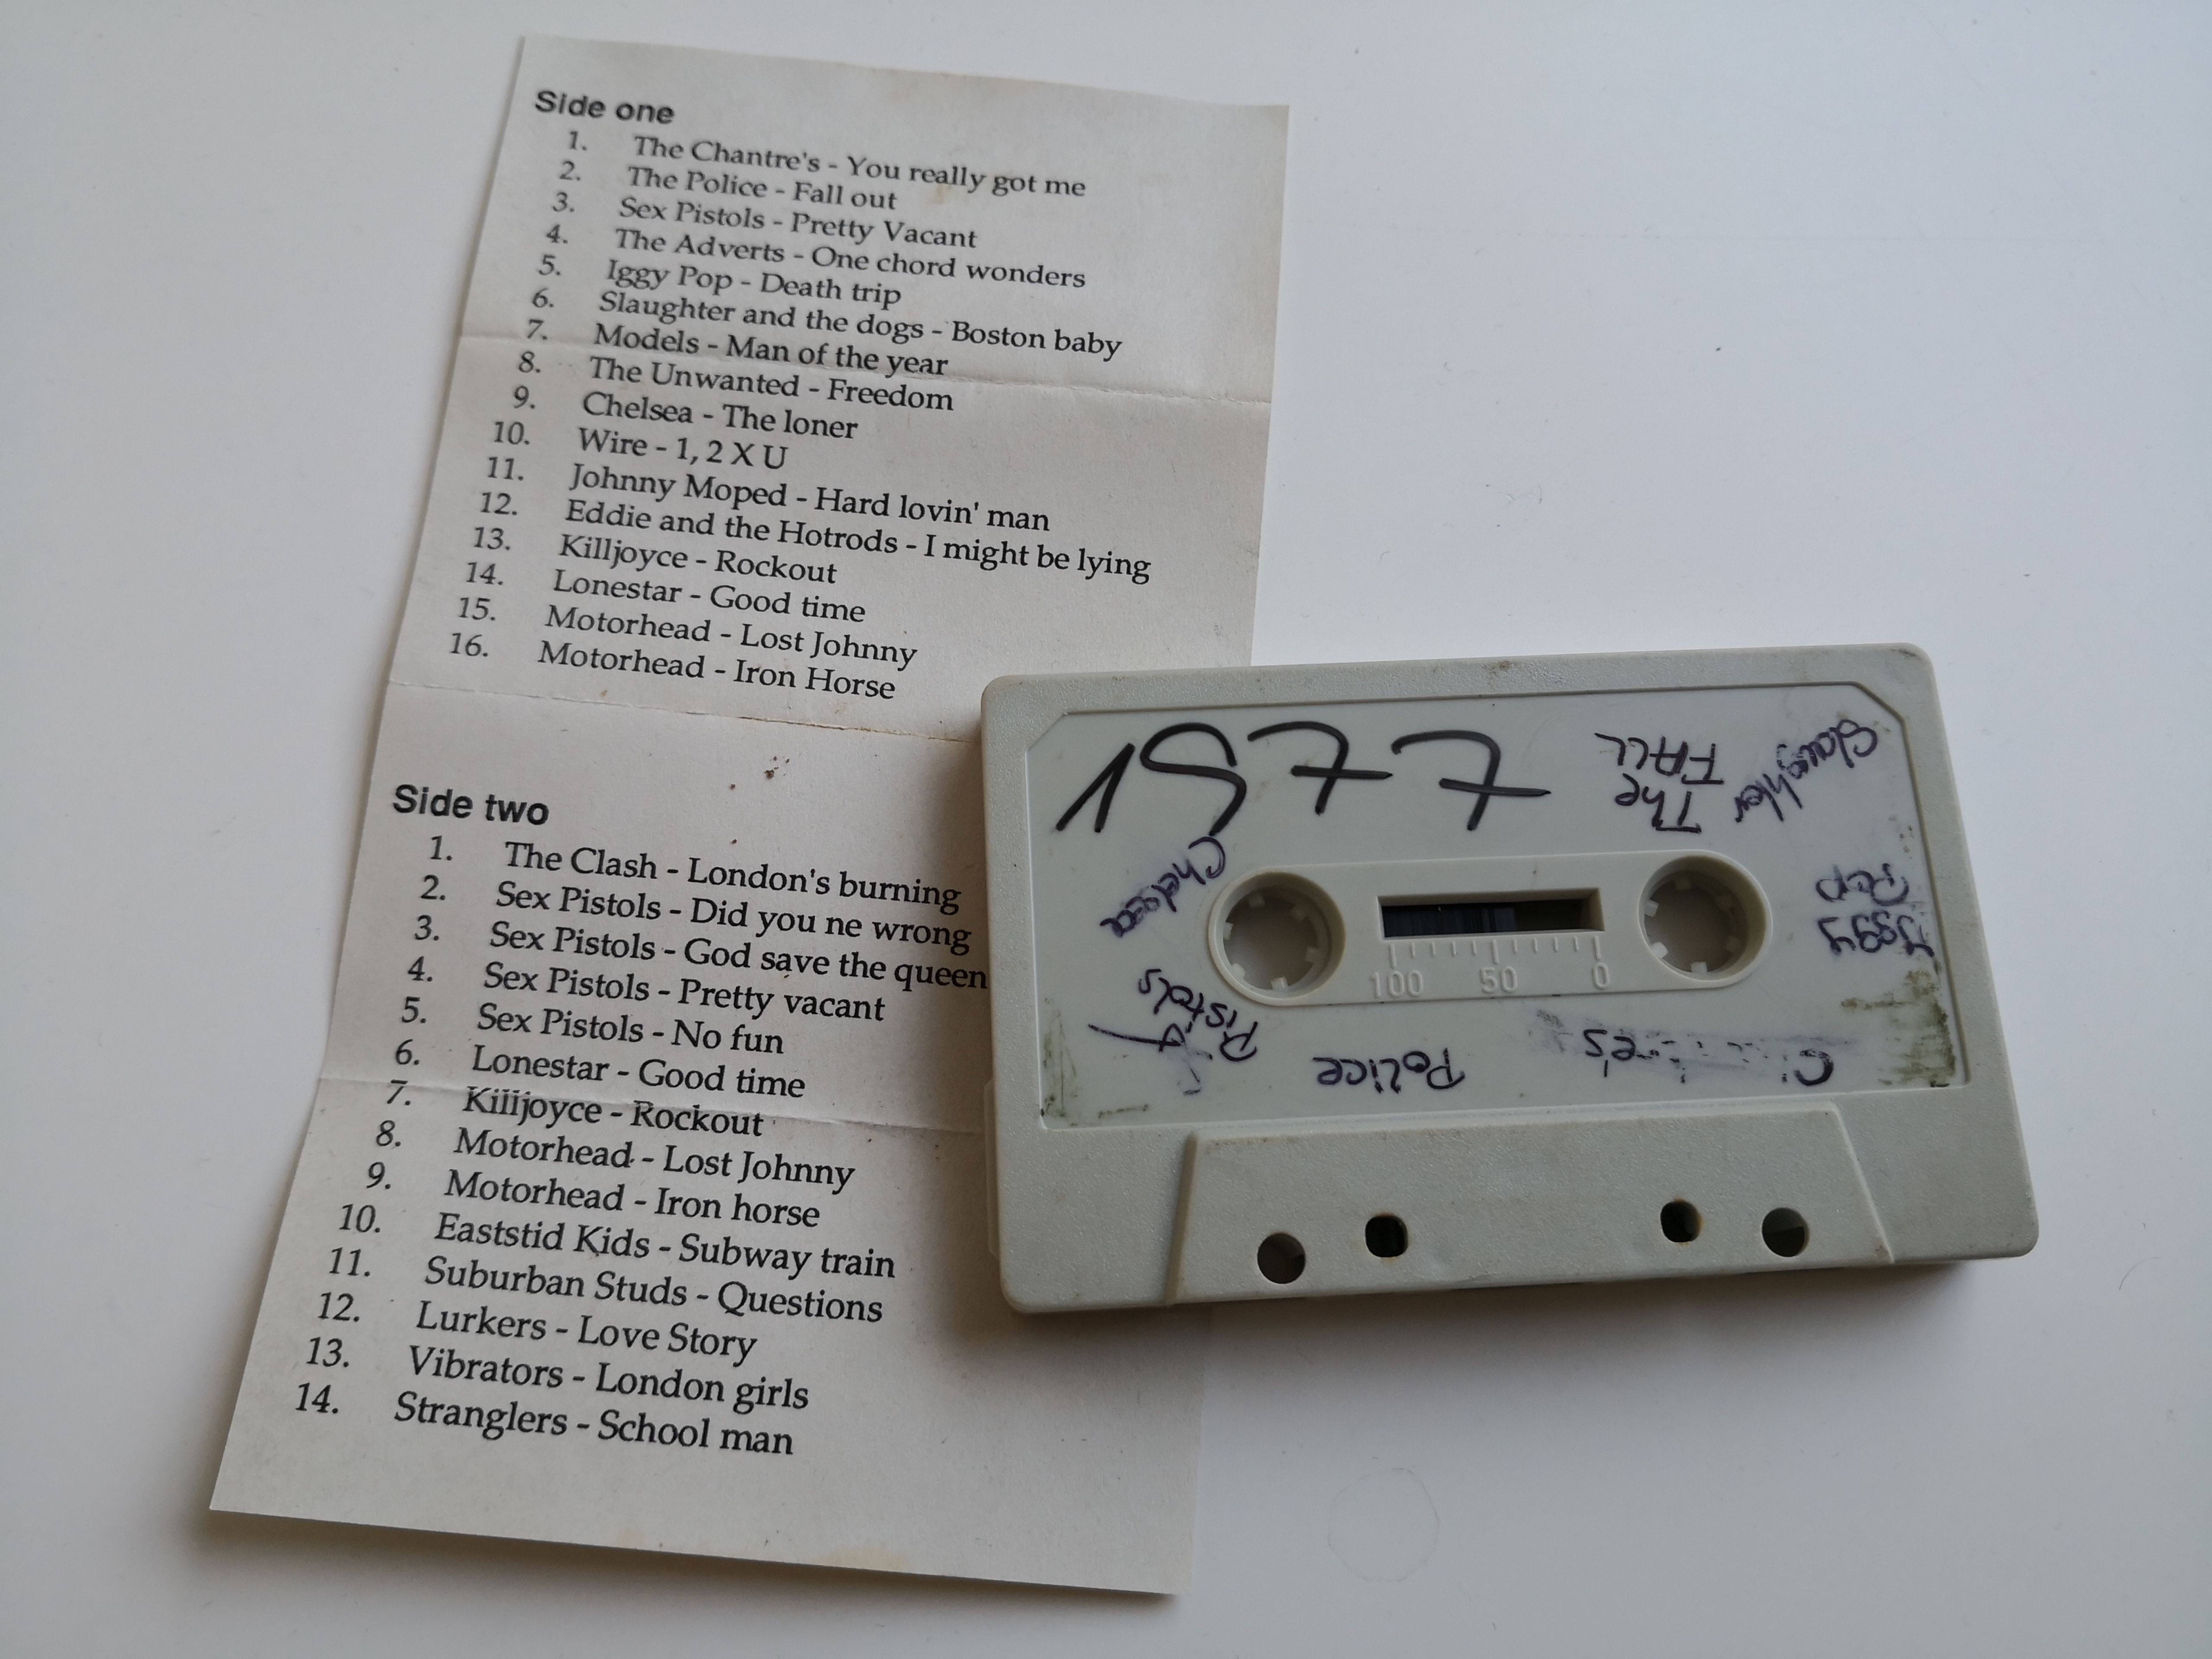 Side one
1. The Chantre's - You really got me
2. The Police - Fall out
3. Sex Pistols - Pretty Vacant
4. The Adverts - One chord wonders
5. Iggy Pop - Death trip
6. Slaughter and the dogs - Boston baby
7. Models - Man of the year
8. The Unwanted - Freedom
9. Chelsea - The loner
10. Wire - 1, 2 X U
11. Johnny Moped - Hard lovin' man
12. Eddie and the Hotrods - I might be lying
13. Killjoyce - Rockout
14. Lonestar - Good time
15. Motorhead - Lost Johnny
16. Motorhead - Iron Horse
Side two
1. The Clash - London's burning
2. Sex Pistols - Did you ne wrong
3. Sex Pistols - God save the queen
4. Sex Pistols - Pretty vacant
5. Sex Pistols - No fun
6. Lonestar - Good time
7. Killjoyce - Rockout
8. Motorhead - Lost Johnny
9. Motorhead - Iron horse
10. Eaststid Kids - Subway train
11. Suburban Studs - Questions
12. Lurkers - Love Story
13. Vibrators - London girls
14. Stranglers - School man
1977
The
FALL
Slaughter
Iggy
Pop
Chelsea
Pistols
Police
100 50 0